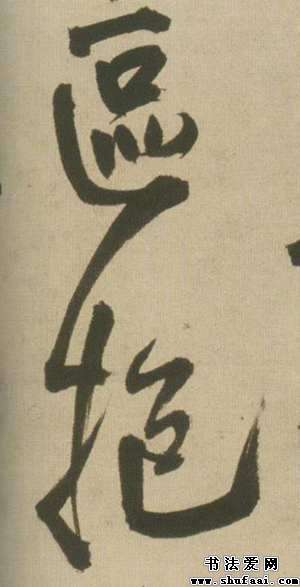 區抱
书法爱网
www.shufaai.com